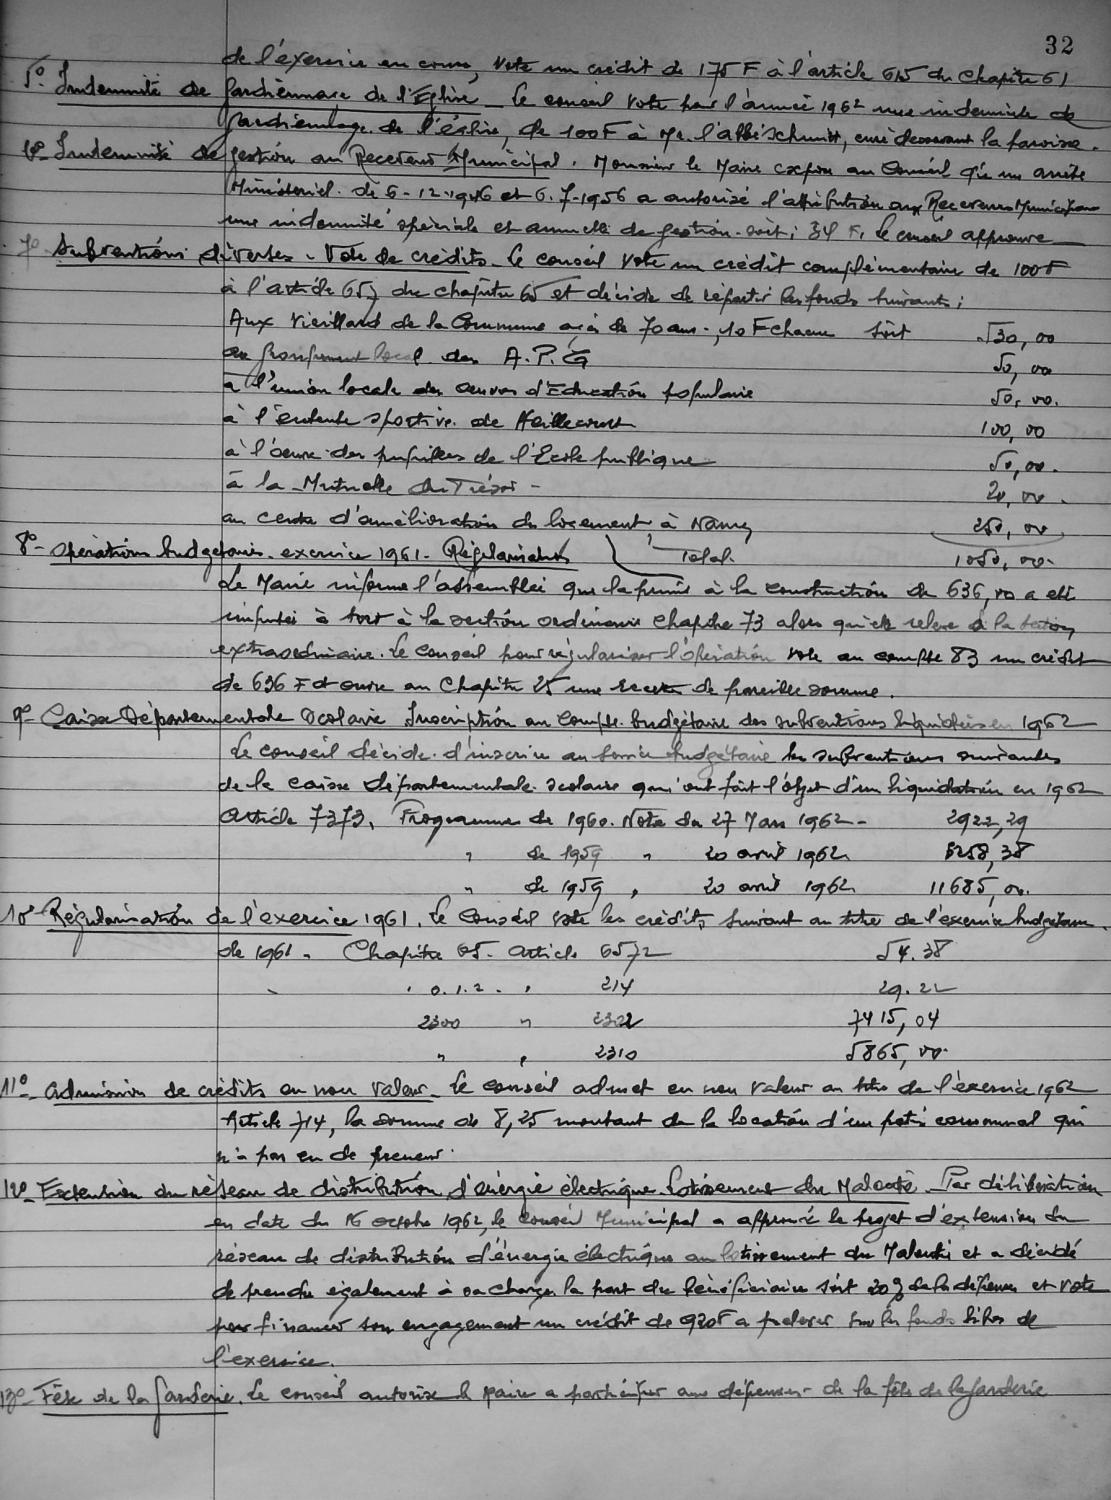 32
de l'exercice en cours, vote un crédit de 175 F à l'article 615 du Chapitre 61
5° Indemnité de Gardiennage de l'Eglise _ Le conseil vote pour l'année 1962 une indemnité de
gardiennage de l'église, de 100 F à Mr. l'abbé Schmitt, curé desservant la paroisse.
6°- Indemnité de gestion au Receveur Municipal. Monsieur le Maire expose au Conseil qu'un arrêté
Ministériel de 6-12-1946 et 6-7-1956 a autorisé l'attribution aux Receveurs Municipaux
une indemnité spéciale et annuelle de gestion. soit: 34 F. Le conseil approuve
7° Subventions diverses - Vote de crédits. Le conseil vote un crédit complémentaire de 100 F
à l'article 657 du chapitre 65 et décide de répartir les fonds suivants:
Aux Vieillards de la Commune âgés de 70 ans -, 10 F chacun soit 530,00
au groupement local des A.P.G 50,00
à l'union locale des oeuvres d'Education populaire 50,00.
à l'entente sportive de Heillecourt 100,00
à l'oeuvre des pupilles de l'Ecole publique 50,00.
à la Mutuelle du Trésor - 20,00.
au centre d'amélioration du logement à Nancy 250,00
8°- Opérations budgétaires. exercice 1961. Régularisation Total. 1050,00.
Le Maire informe l'assemblée que la prime à la construction de 636,00 a été
imputée à tort à la section ordinaire Chapitre 73 alors qu'elle relève de la section
extraordinaire. Le Conseil pour régulariser l'opération vote au compte 83 un crédit
de 636 F et ouvre au Chapitre 25 une recette de pareille somme.
9°- Caisse Départementale Scolaire Inscription au Compte budgétaire des subventions liquidées en 1962
Le conseil décide d'inscrire au budgétaire les subventions suivantes
de la caisse départementale scolaire qui ont fait l'objet d'une liquidation en 1962
Article 7373. Programme de 1960. Note du 27 Mars 1962 - 2922,29
" de 1959 " 20 avril 1962 8258,38
" de 1959 " 20 avril 1962 11685,00.
10° Régularisation de l'exercice 1961. Le Conseil vote les crédits suivant au titre de l'exercice budgétaire
de 1961 - Chapitre 65 - Article 6572 54.38
" 0.1.2. " 214 29.22
2300 " 2302 7415,04
" " 2310 5865,00
11°- Admission de crédits en non valeur _ Le conseil admet en non valeur au titre de l'exercice 1962
Article 714, la somme de 8,25 montant de la location d'un pâtis communal qui
n'a pas eu de preneur.
12°- Extension du réseau de distribution d'énergie électrique. Lotissement du . Par délibération
en date du 16 octobre 1962, le conseil Municipal a approuvé le projet d'extension du
réseau de distribution d'énergie électrique au lotissement du et a décidé
de prendre également à sa charge la part du bénéficiaire soit 20% de la dépense et vote
pour financer son engagement un crédit de 920 F a prélever sur les fonds libres de
l'exercice.
13°- Fête de la Garderie. Le conseil autorise le Maire a participer aux dépenses de la fête de la Garderie